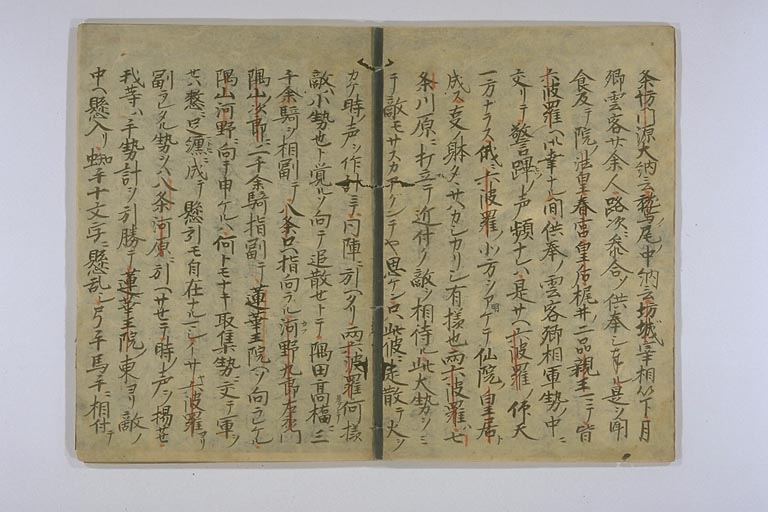 条坊門源大納言鷲尾中納言坊城宰相以下月
卿雲客廿余人路次ニ参合ツ供奉シ奉ル是ヲ聞
食及テ院法皇春宮皇后梶井二品親王ニテ皆
六波羅ヘ御幸ナル間供奉ノ雲客卿相軍勢ノ中ニ
交リテ警蹕ノ声頻ナレハ是サヘ六波羅ノ仰天
一方ナラス俄ニ六波羅ノ北方ヲアケテ仙院皇居ト
成ス事ノ躰タヽサハカシカリシ有様也両六波羅ハ七
条川原ニ打立テ近付ク敵ヲ相待ル此大勢ヲミ
テ敵モサスカアクンテヤ思ケン只此彼ニ走散テ火ヲ
カケ時ノ声ヲ作計ニテ同陣ニ引ヘタリ両六波羅何様
敵ハ小勢也ト覚ソ向テ追散セトテ隅田高橋ニ三
千余騎ヲ相副テ八条口ヘ指向ラル河野九郎左衛門
隅山次郎ニ二千余騎指副テ蓮華王院ヘソ向ラレケル
隅山河野ニ向テ申ケルハ何トモナキ取集勢ニ交テ軍ヲ
セハ憖ニ足纏ニ成テ懸引モ自在ナルマシイサヤ六波羅ヨリ
副ラレタル勢ヲハ八条河原ニ引ヘサセテ時ノ声ヲ揚セ
我等ハ手勢計ヲ引勝テ蓮華王院ノ東ヨリ敵ノ
中ヘ懸入リ蜘手十文字ニ懸乱シ弓手馬手ニ相付テ